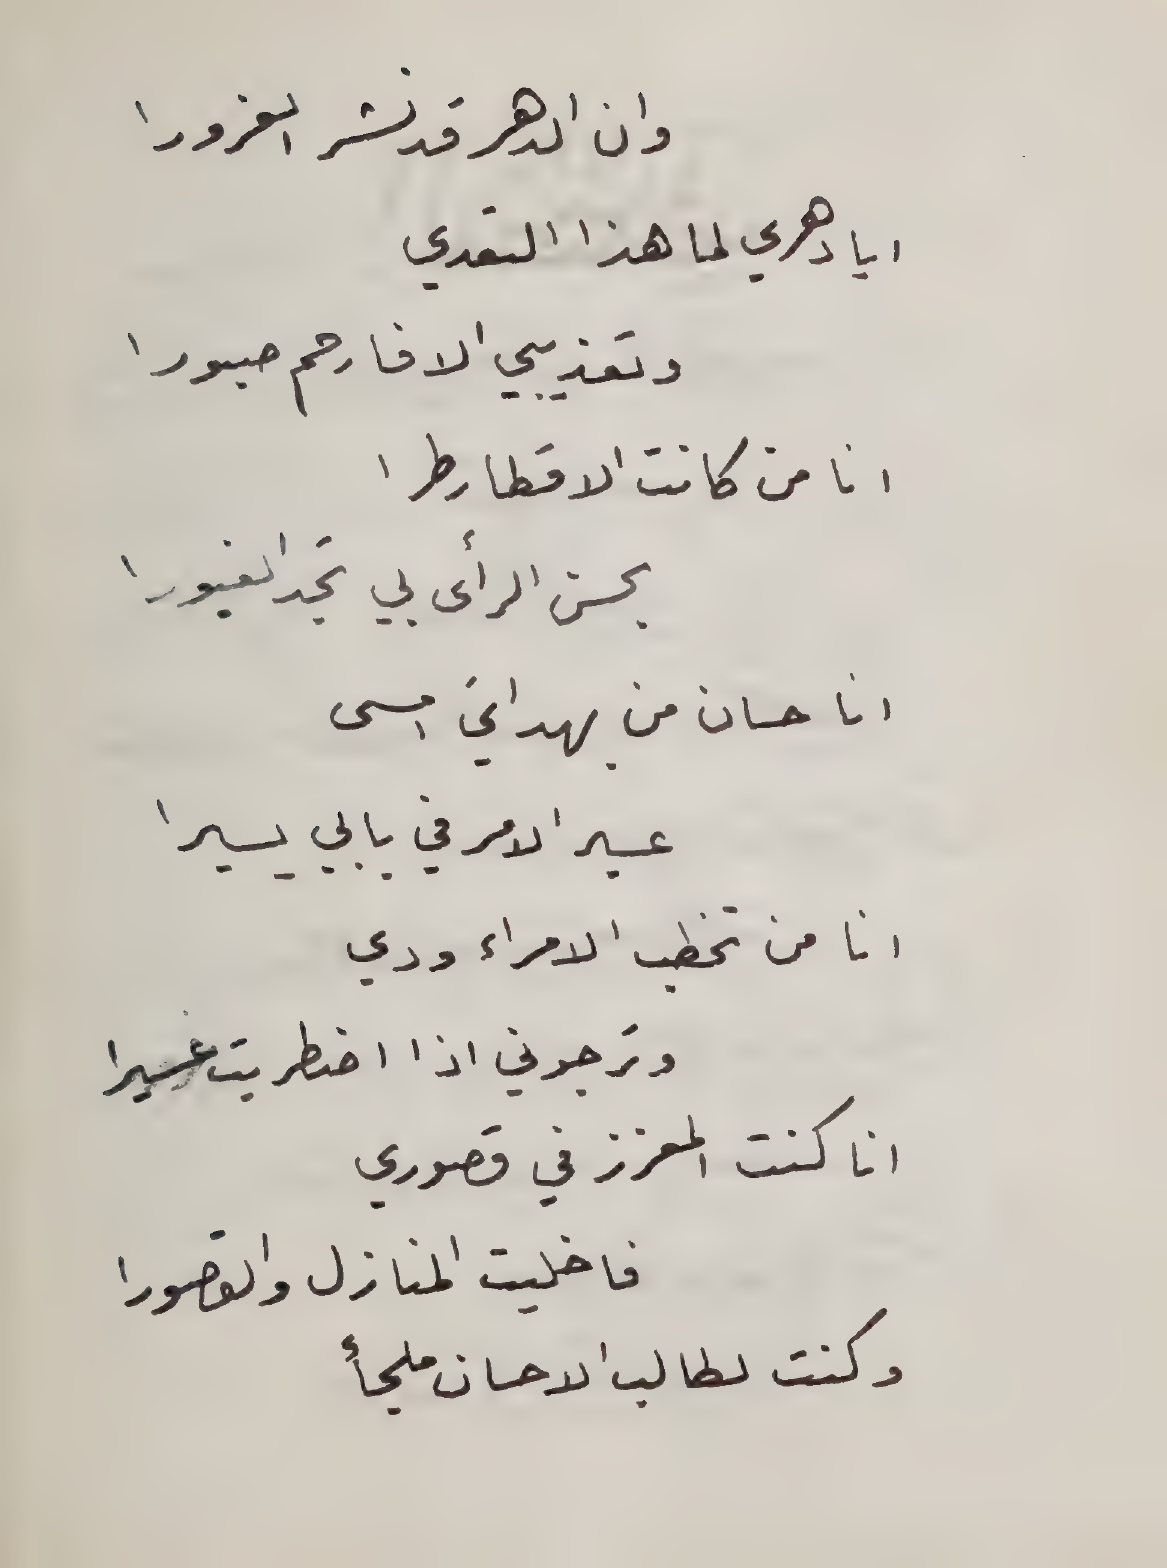 وان الدهر قد نشر الغرورا
ايا دهري لما هذا التعدي
وتعذيبي الا فارحم صبورا
انا من كانت الاقطار طرا
بحسن الرأى بي تجد الغيورا
انا حسان من بهداي امسى
عسير الامر في بالي يسيرا
انا من تخطب الامراء ودي
وترجوني اذا اضطربت عسيرا
انا كنت المعزز في قصوري
فاخليت المنازل والقصورا
وكنت لطالب الاحسان ملجأ